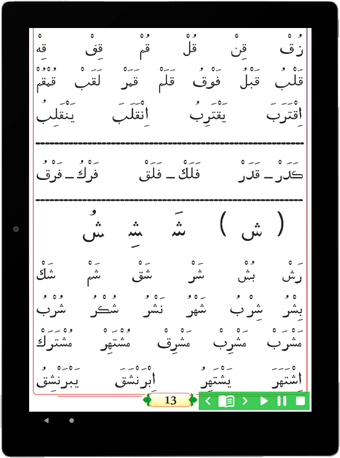 زُقْ قِنْ قُلْ قُمْ قِفْ قِهْ
قَلْبُ قَبْلُ فَوْقُ قَلَمْ قَهَرَ لَقَبْ قُهْقُمْ
اِقْتَرَبَ يَقْتَرِبُ اِنْقَلَبَ يَنْقَلِبُ
كَدَرْ – قَدَرْ فَلَكْ – فَلَقْ فَرْكُ – فَرْقُ
( ش ) شَ شِ شُ
رَشْ بُشْ شَرْ شَقْ شَمْ شَكْ
بِشْرُ شِرْبُ شَهْرُ نَشْرُ شُكْرُ شُرْبُ
مَشْرَبْ مَشْرِبْ مَشْرِقْ مُشْتَهِرْ مُشْتَرَكْ
اِشْتَهَرَ يَشْتَهِرُ اِبْرَنْشَقَ يَبْرَنْشِقُ
13